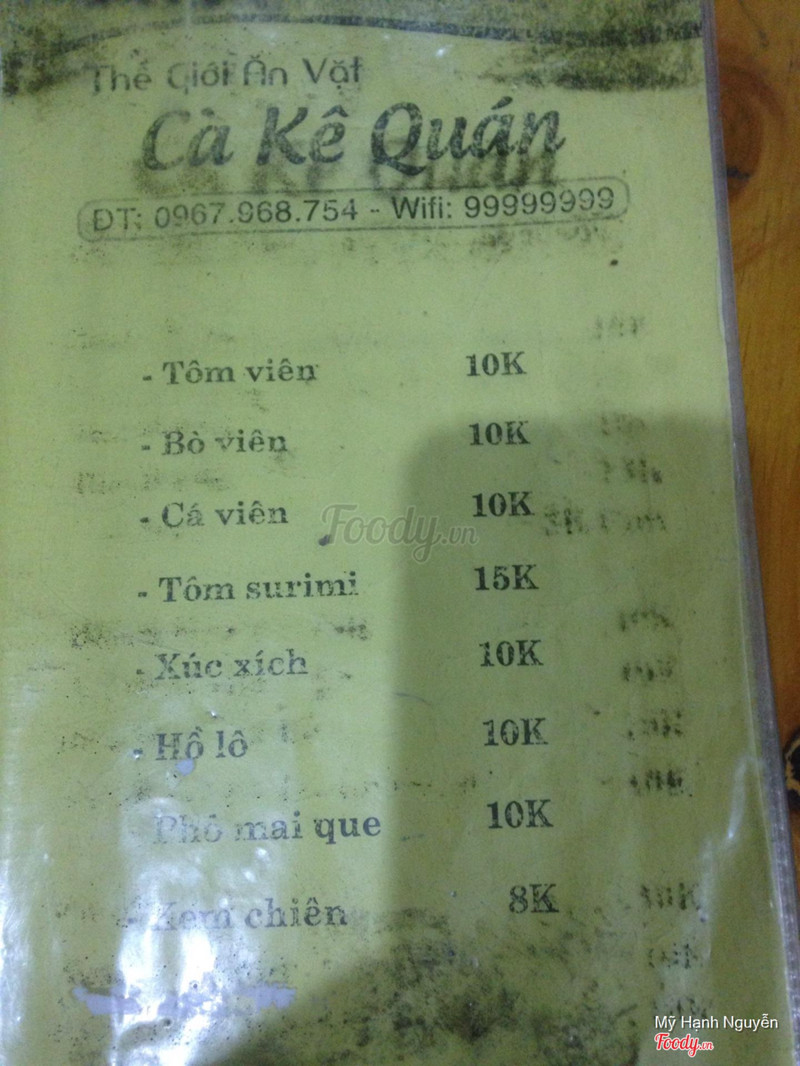 Thế Giới Ăn Vặt
Cà Kê Quán
ĐT: 0967.968.754 - Wifi: 99999999
- Tôm viên 10K
- Bò viên 10K
- Cá viên 10K
Foody.vn
- Tôm surimi 15K
- Xúc xích 10K
- Hồ lô 10K
- Phô mai que 10K
- Kem chiên 8K
Mỹ Hạnh Nguyễn
Foody.vn